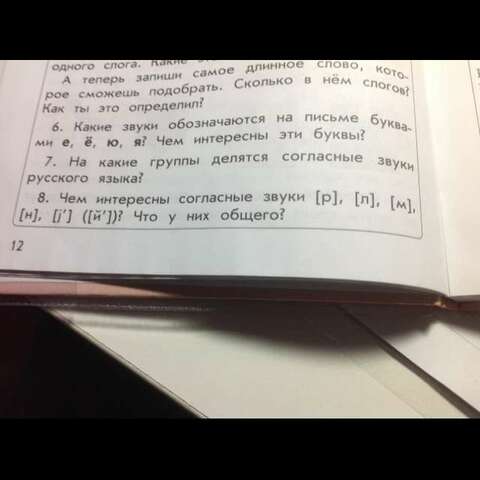 одного слога. Какие
А теперь запиши самое длинное слово, кото-
рое сможешь подобрать. Сколько в нём слогов?
Как ты это определил?
6. Какие звуки обозначаются на письме буква-
ми е, ё, ю, я? Чем интересны эти буквы?
7. На какие группы делятся согласные звуки
русского языка?
8. Чем интересны согласные звуки [р], [л], [м],
[н], [j'] ([й'])? Что у них общего?
12